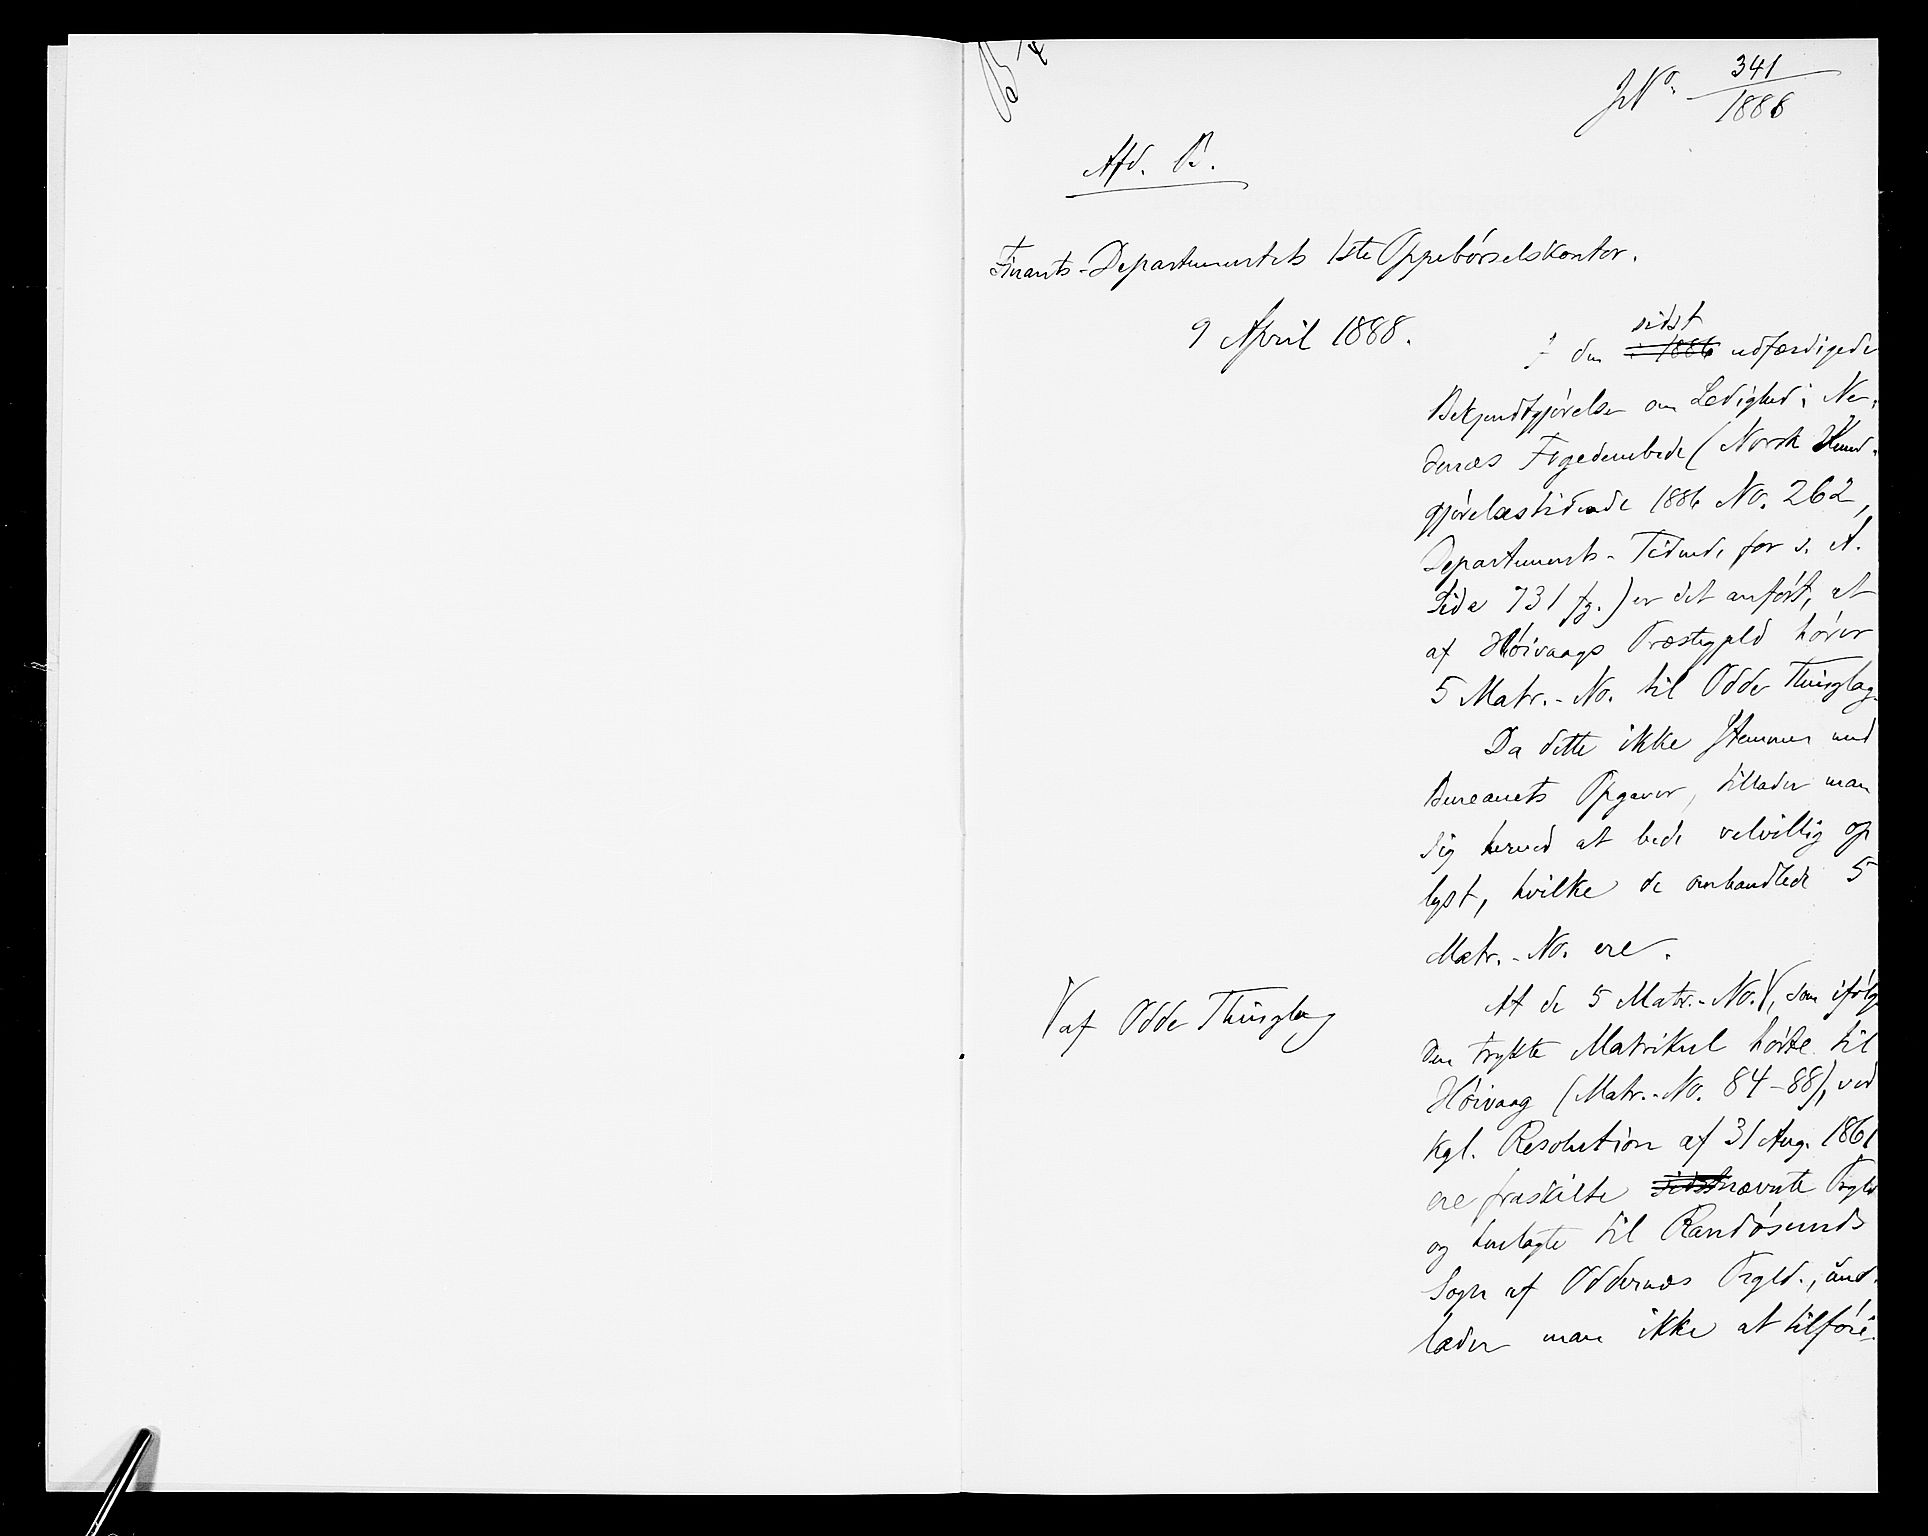 JNo. 341/1888
Afd. B.
Finants-Departementets 1ste Oppebørselskontor.
9 April 1888.
sidst
I den i 1886 udfærdigede
Bekjendtgjørelse om Ledighed i Ne-
denæs Fogedembede (Norsk Kund-
gjørelsestidende 1886 No. 262,
Departements-Tidende for s. A.
Side 731 fg.) er det anført, at
af Høivaags Præstegjeld hører
5 Matr.-No. til Odde Thinglag.
Da dette ikke stemmer med
Bureauets Opgaver, tillader man
sig herved at bede velvillig op
lyst, hvilke de omhandlede 5
Matr.-No. ere.
At de 5 Matr.-No. V, som ifølge
V af Odde Thinglag
den trykte Matrikul hørte til
Høivaag (Matr.-No. 84-88), ved
kgl. Resolution af 31 Aug. 1861
ere fraskilte sidstnævnte Prgld
og henlagte til Randøsunds
Sogn af Oddernæs Prgld., und-
lader man ikke at tilføie.